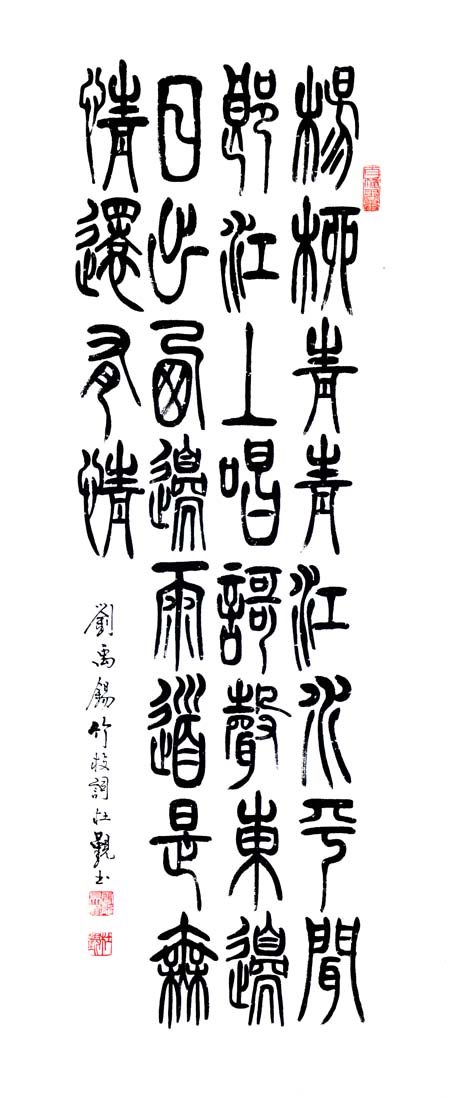 楊柳青青江水平聞
郎江上唱謌聲東邊
日出西邊雨道是無
情還有情
劉禹錫竹枝詞